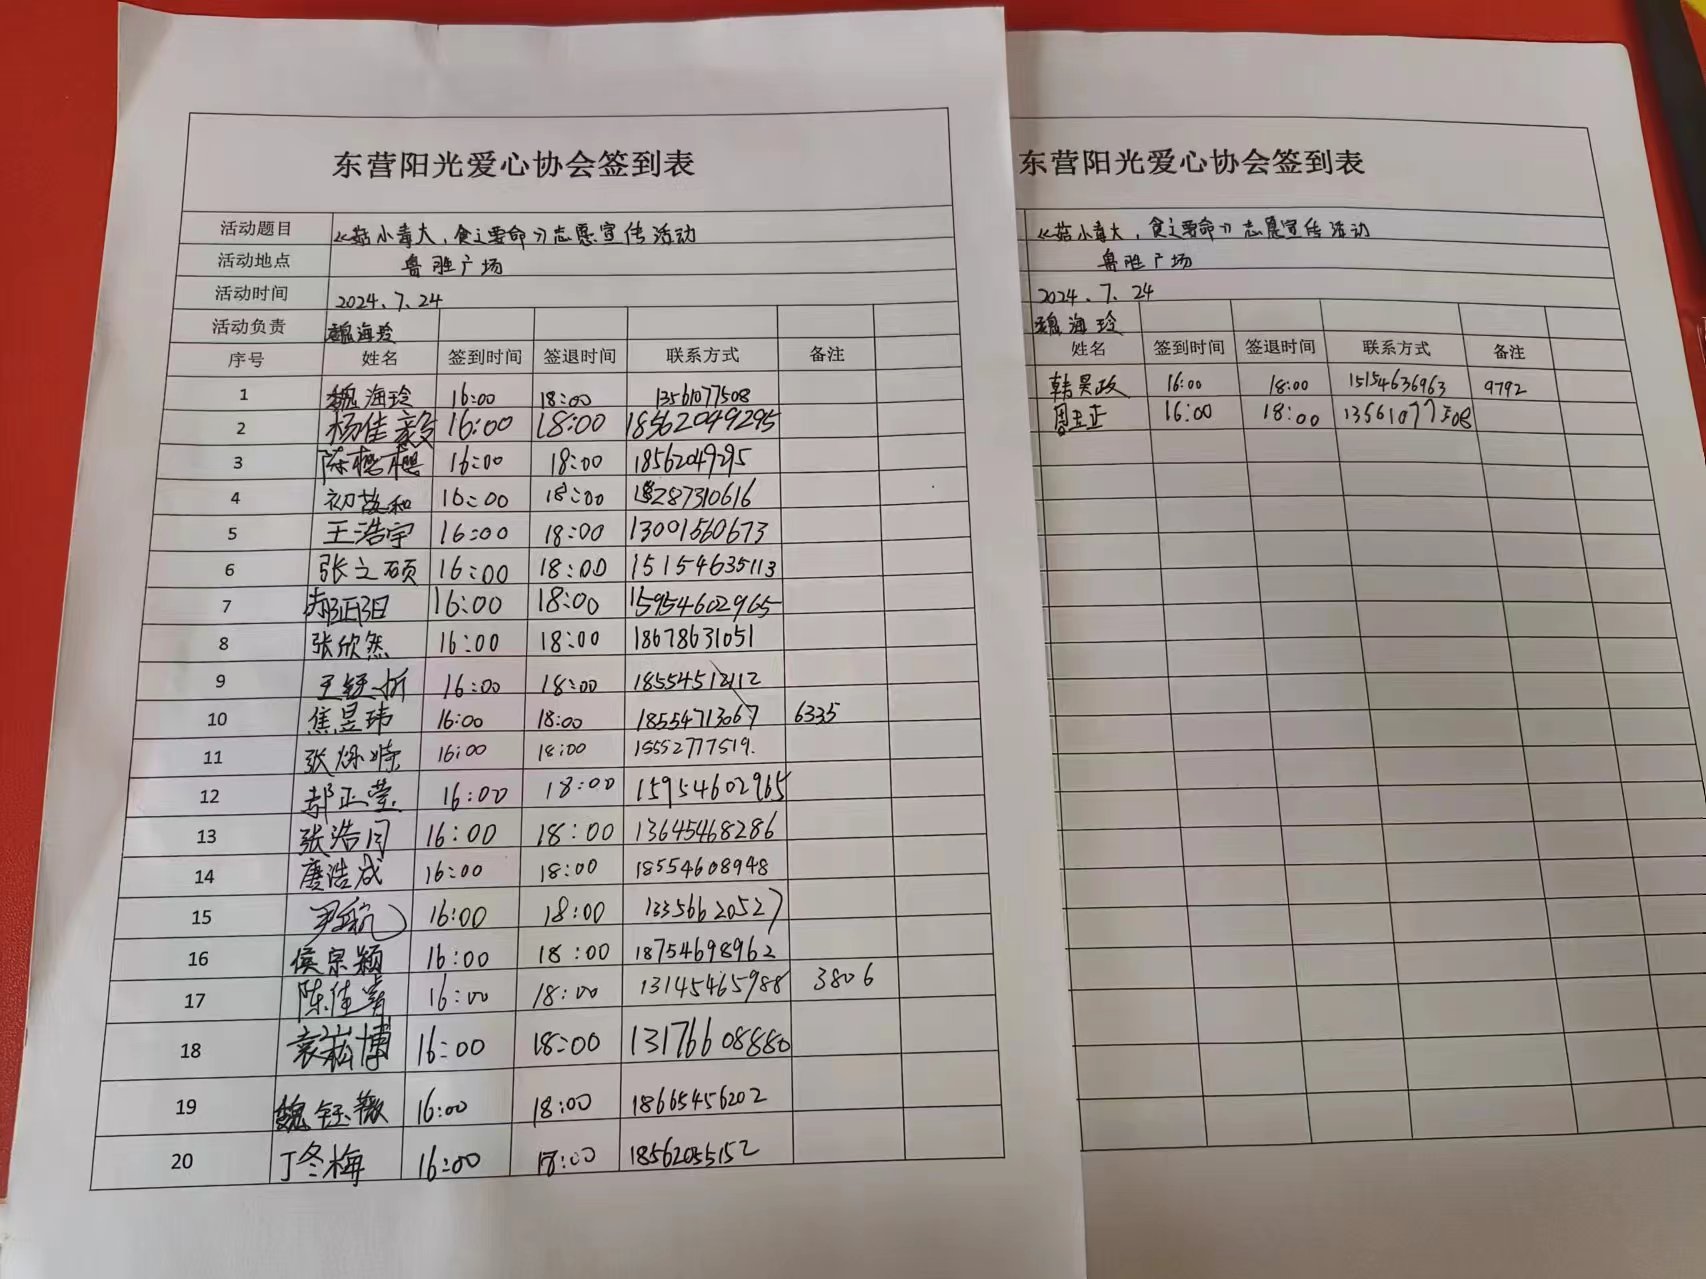 东营阳光爱心协会签到表
活动题目 《菇小毒大，食之要命》志愿宣传活动
活动地点 鲁胜广场
活动时间 2024.7.24
活动负责 魏海玲
序号 姓名 签到时间 签退时间 联系方式 备注
1 魏海玲 16:00 18:00 13561077508
2 杨佳毅 16:00 18:00 18562049295
3 陈 16:00 18:00 18562049295
4 初 和 16:00 18:00 18287310616
5 王浩宇 16:00 18:00 13001560673
6 张之硕 16:00 18:00 15154635113
7 郝正阳 16:00 18:00 15954602965
8 张欣然 16:00 18:00 18678631051
9 王 16:00 18:00 18554512112
10 焦昱玮 16:00 18:00 18554713067 6335
11 张 16:00 18:00 15552777519.
12 郝正莹 16:00 18:00 15954602965
13 张浩 16:00 18:00 13645468286
14 浩成 16:00 18:00 18554608948
15 16:00 18:00 13356620527
16 侯宗颖 16:00 18:00 18754698962
17 陈佳 16:00 18:00 13145465988 3806
18 袁崧博 16:00 18:00 13176608880
19 魏钰薇 16:00 18:00 18665456202
20 丁冬梅 16:00 18:00 18562055152
东营阳光爱心协会签到表
《菇小毒大，食之要命》志愿宣传活动
鲁胜广场
2024.7.24
魏海玲
姓名 签到时间 签退时间 联系方式 备注
韩昊政 16:00 18:00 15154636963 9792
周玉正 16:00 18:00 13561077508